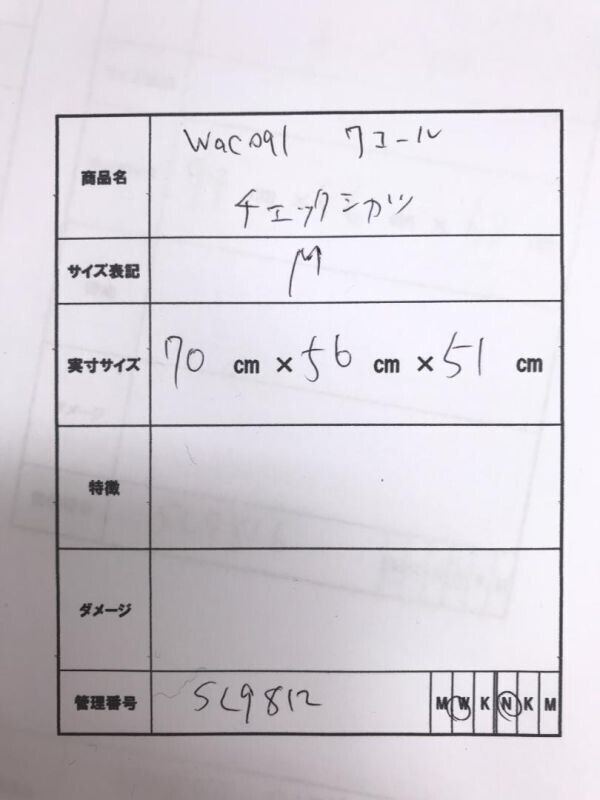 商品名 Wacoal ワコール
チェックシャツ
サイズ表記 M
実寸サイズ 70 cm × 56 cm × 51 cm
特徴
ダメージ
管理番号 SL9812 M W K N K M